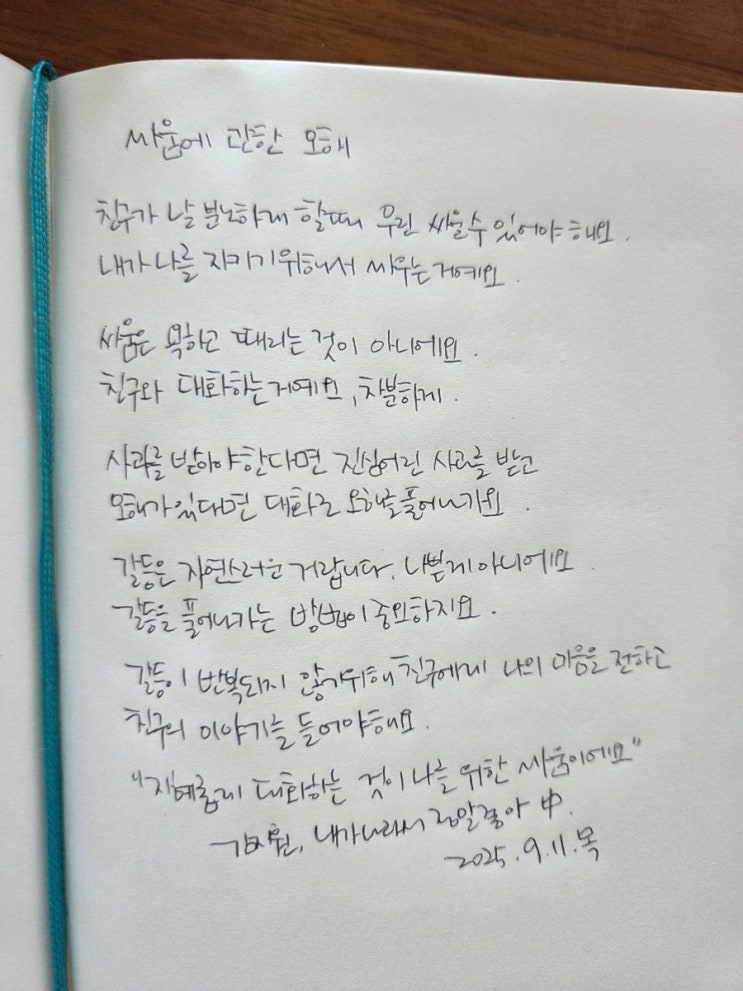 싸움에 관한 오해
친구가 날 분노하게 할때 우린 싸울수 있어야 해요.
내가 나를 지키기위해서 싸우는거예요.
싸움은 욕하고 때리는 것이 아니에요.
친구와 대화하는거예요, 차분하게.
사과를 받아야한다면 진심어린 사과를 받고
오해가있다면 대화로 오해를풀어나가요.
갈등은 자연스러운 거랍니다. 나쁜게아니에요.
갈등을 풀어나가는 방법이 중요하지요.
갈등이 반복되지 않기위해 친구에게 나의 마음을 전하고
친구의 이야기를 들어야해요.
"지혜롭게 대화하는 것이 나를 위한 싸움이에요"
김지훤, 내가나라서 정말좋아 中.
2025.9.11.목